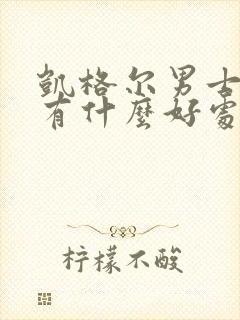 凯格尔男士
有什麼好處
柠檬不酸